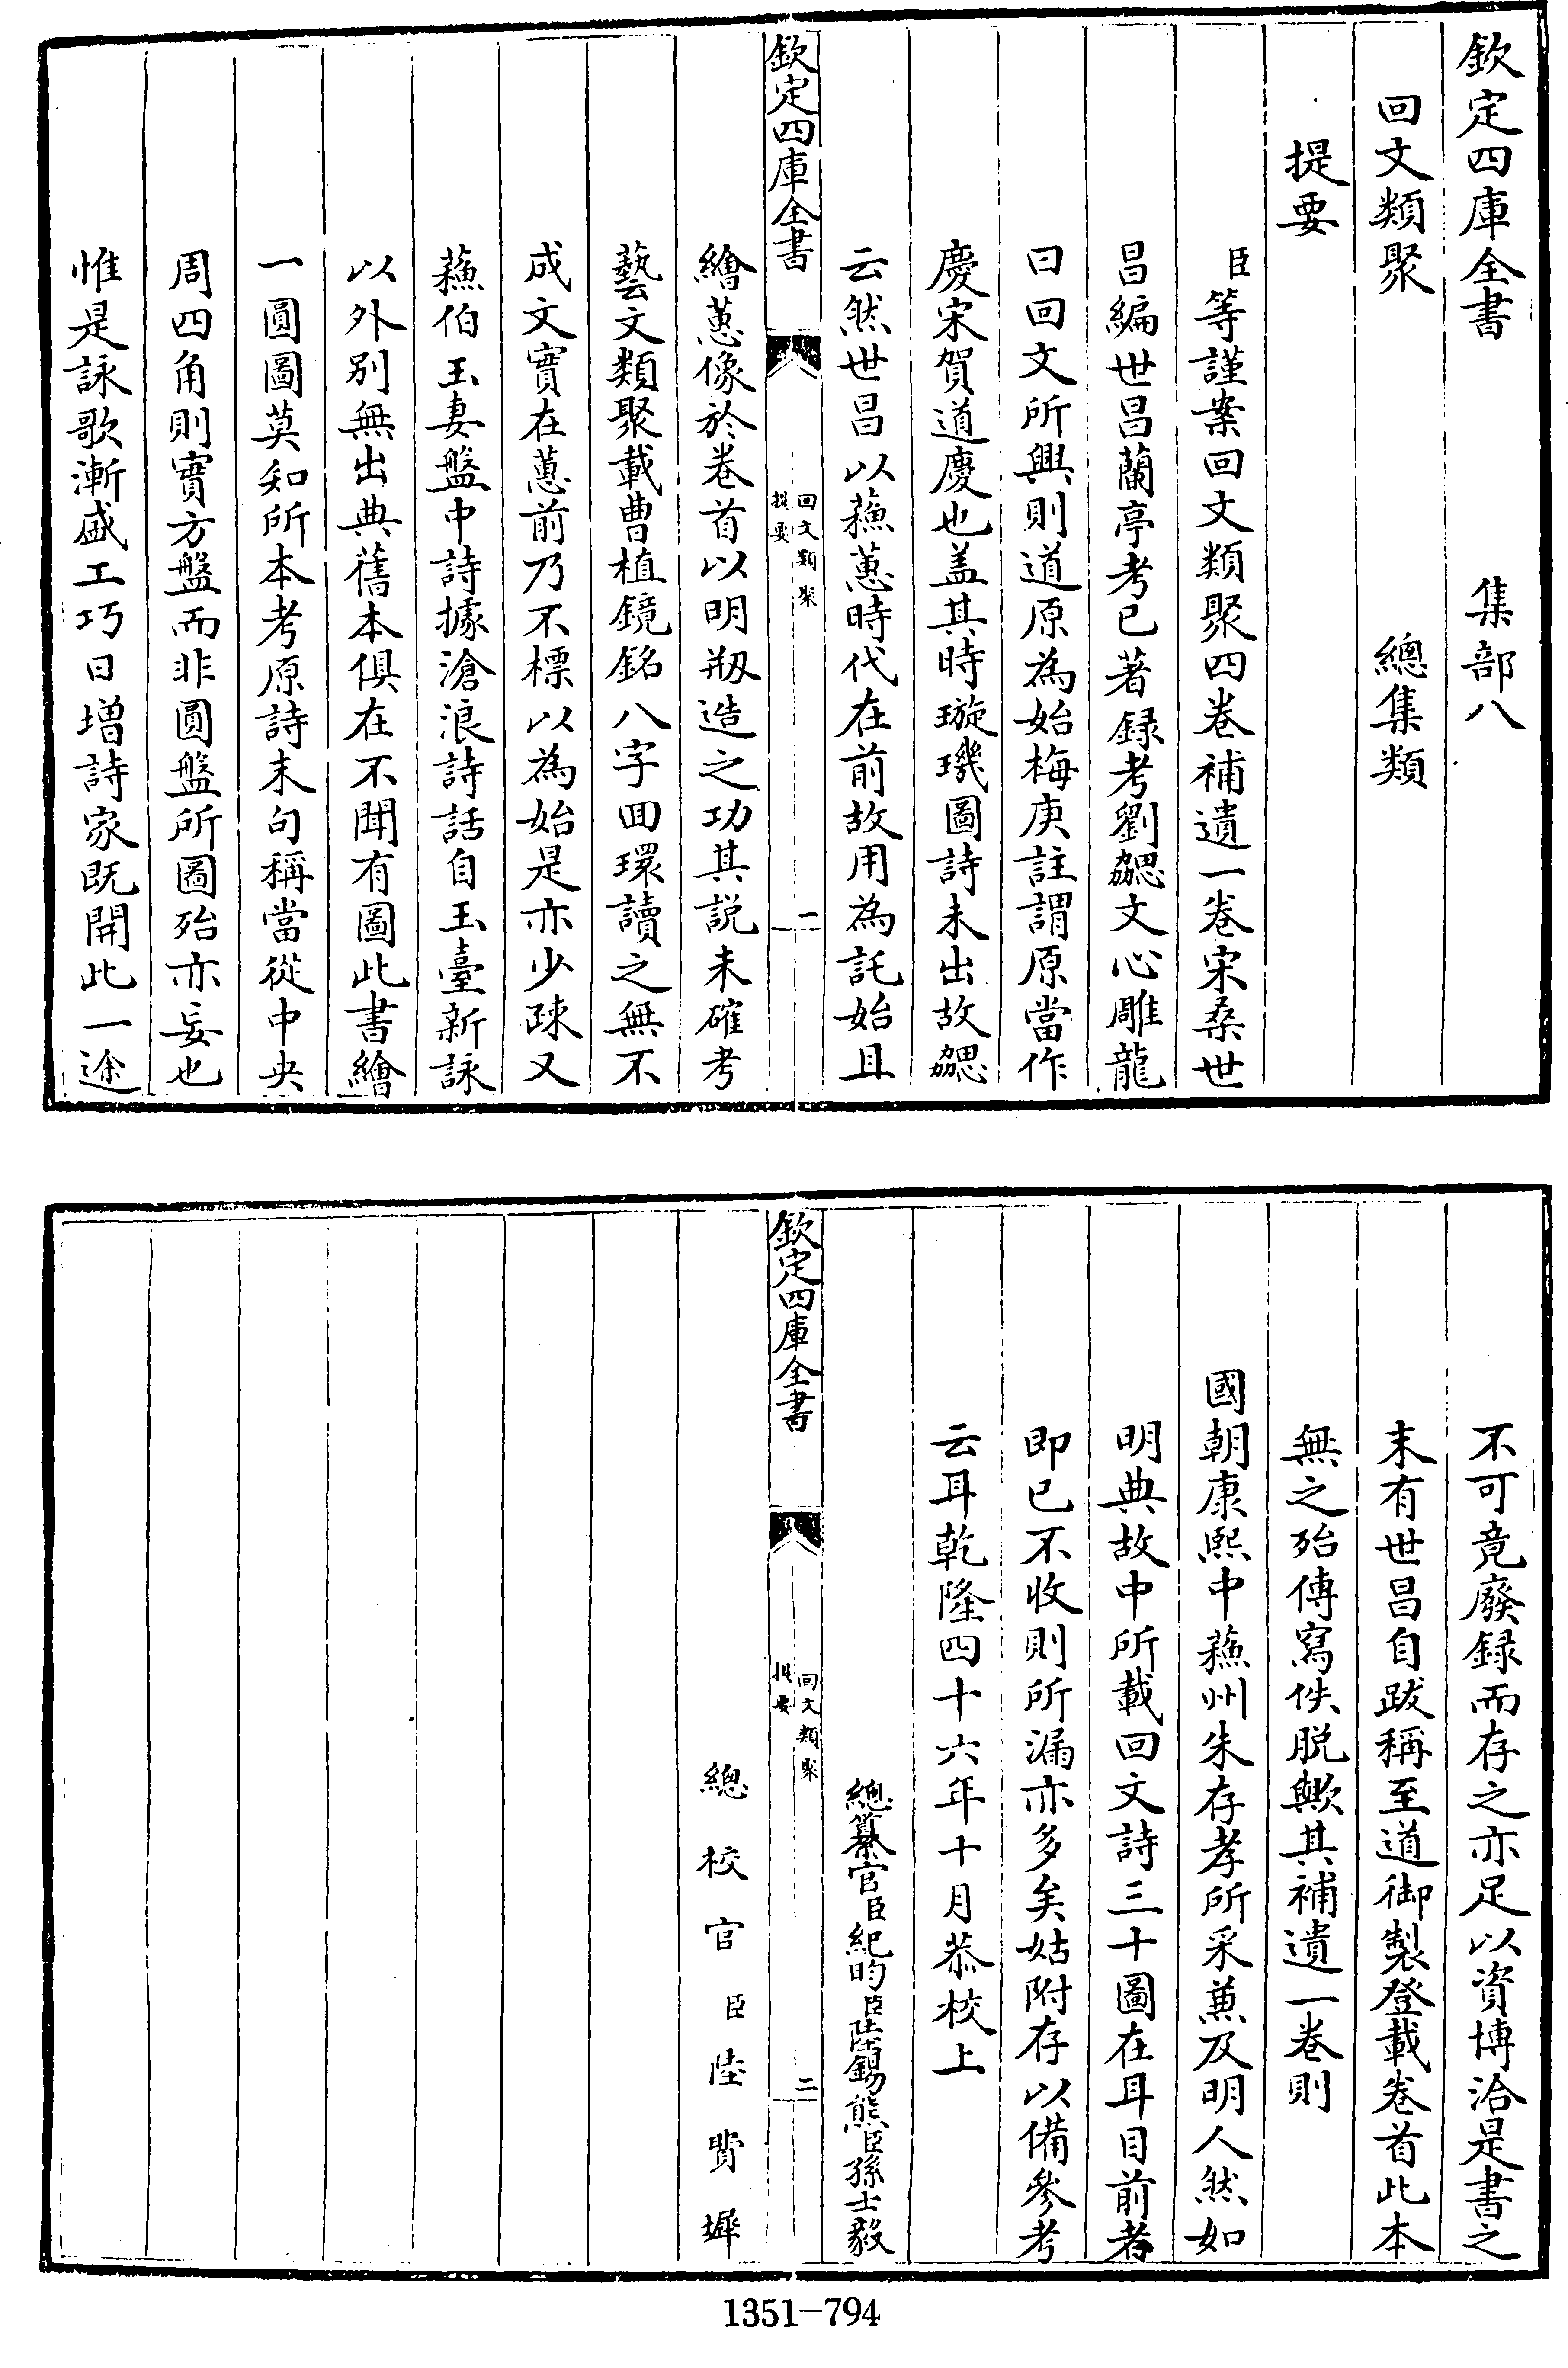 欽定四庫全書　集部八
回文類聚　總集類
提要
臣等謹案回文類聚四卷補遺一卷宋桑世
昌編世昌蘭亭考已著録考劉勰文心雕龍
曰回文所興則道原為始梅庚註謂原當作
慶宋賀道慶也盖其時璇璣圖詩未出故勰
云然世昌以蘓蕙時代在前故用為託始且
欽定四庫全書
回文類聚
提要
一
繪蕙像於卷首以明剏造之功其説未確考
藝文類聚載曹植鏡銘八字回環讀之無不
成文實在蕙前乃不標以為始是亦少疎又
蘓伯玉妻盤中詩據滄浪詩話自玉臺新詠
以外別無出典舊本俱在不聞有圖此書繪
一圓圖莫知所本考原詩末句稱當從中央
周四角則實方盤而非圓盤所圖殆亦妄也
惟是詠歌漸盛工巧日增詩家既開此一途
不可竟廢録而存之亦足以資博洽是書之
末有世昌自跋稱至道御製登載卷首此本
無之殆傳寫佚脱歟其補遺一卷則
國朝康熙中蘓州朱存孝所采蒐及明人然如
明典故中所載回文詩三十圖在耳目前者
即已不收則所漏亦多矣姑附存以備參考
云耳乾隆四十六年十月恭校上
總纂官臣紀昀臣陸錫熊臣孫士毅
欽定四庫全書
回文類聚
提要
二
總校官臣陸費墀
1351-794